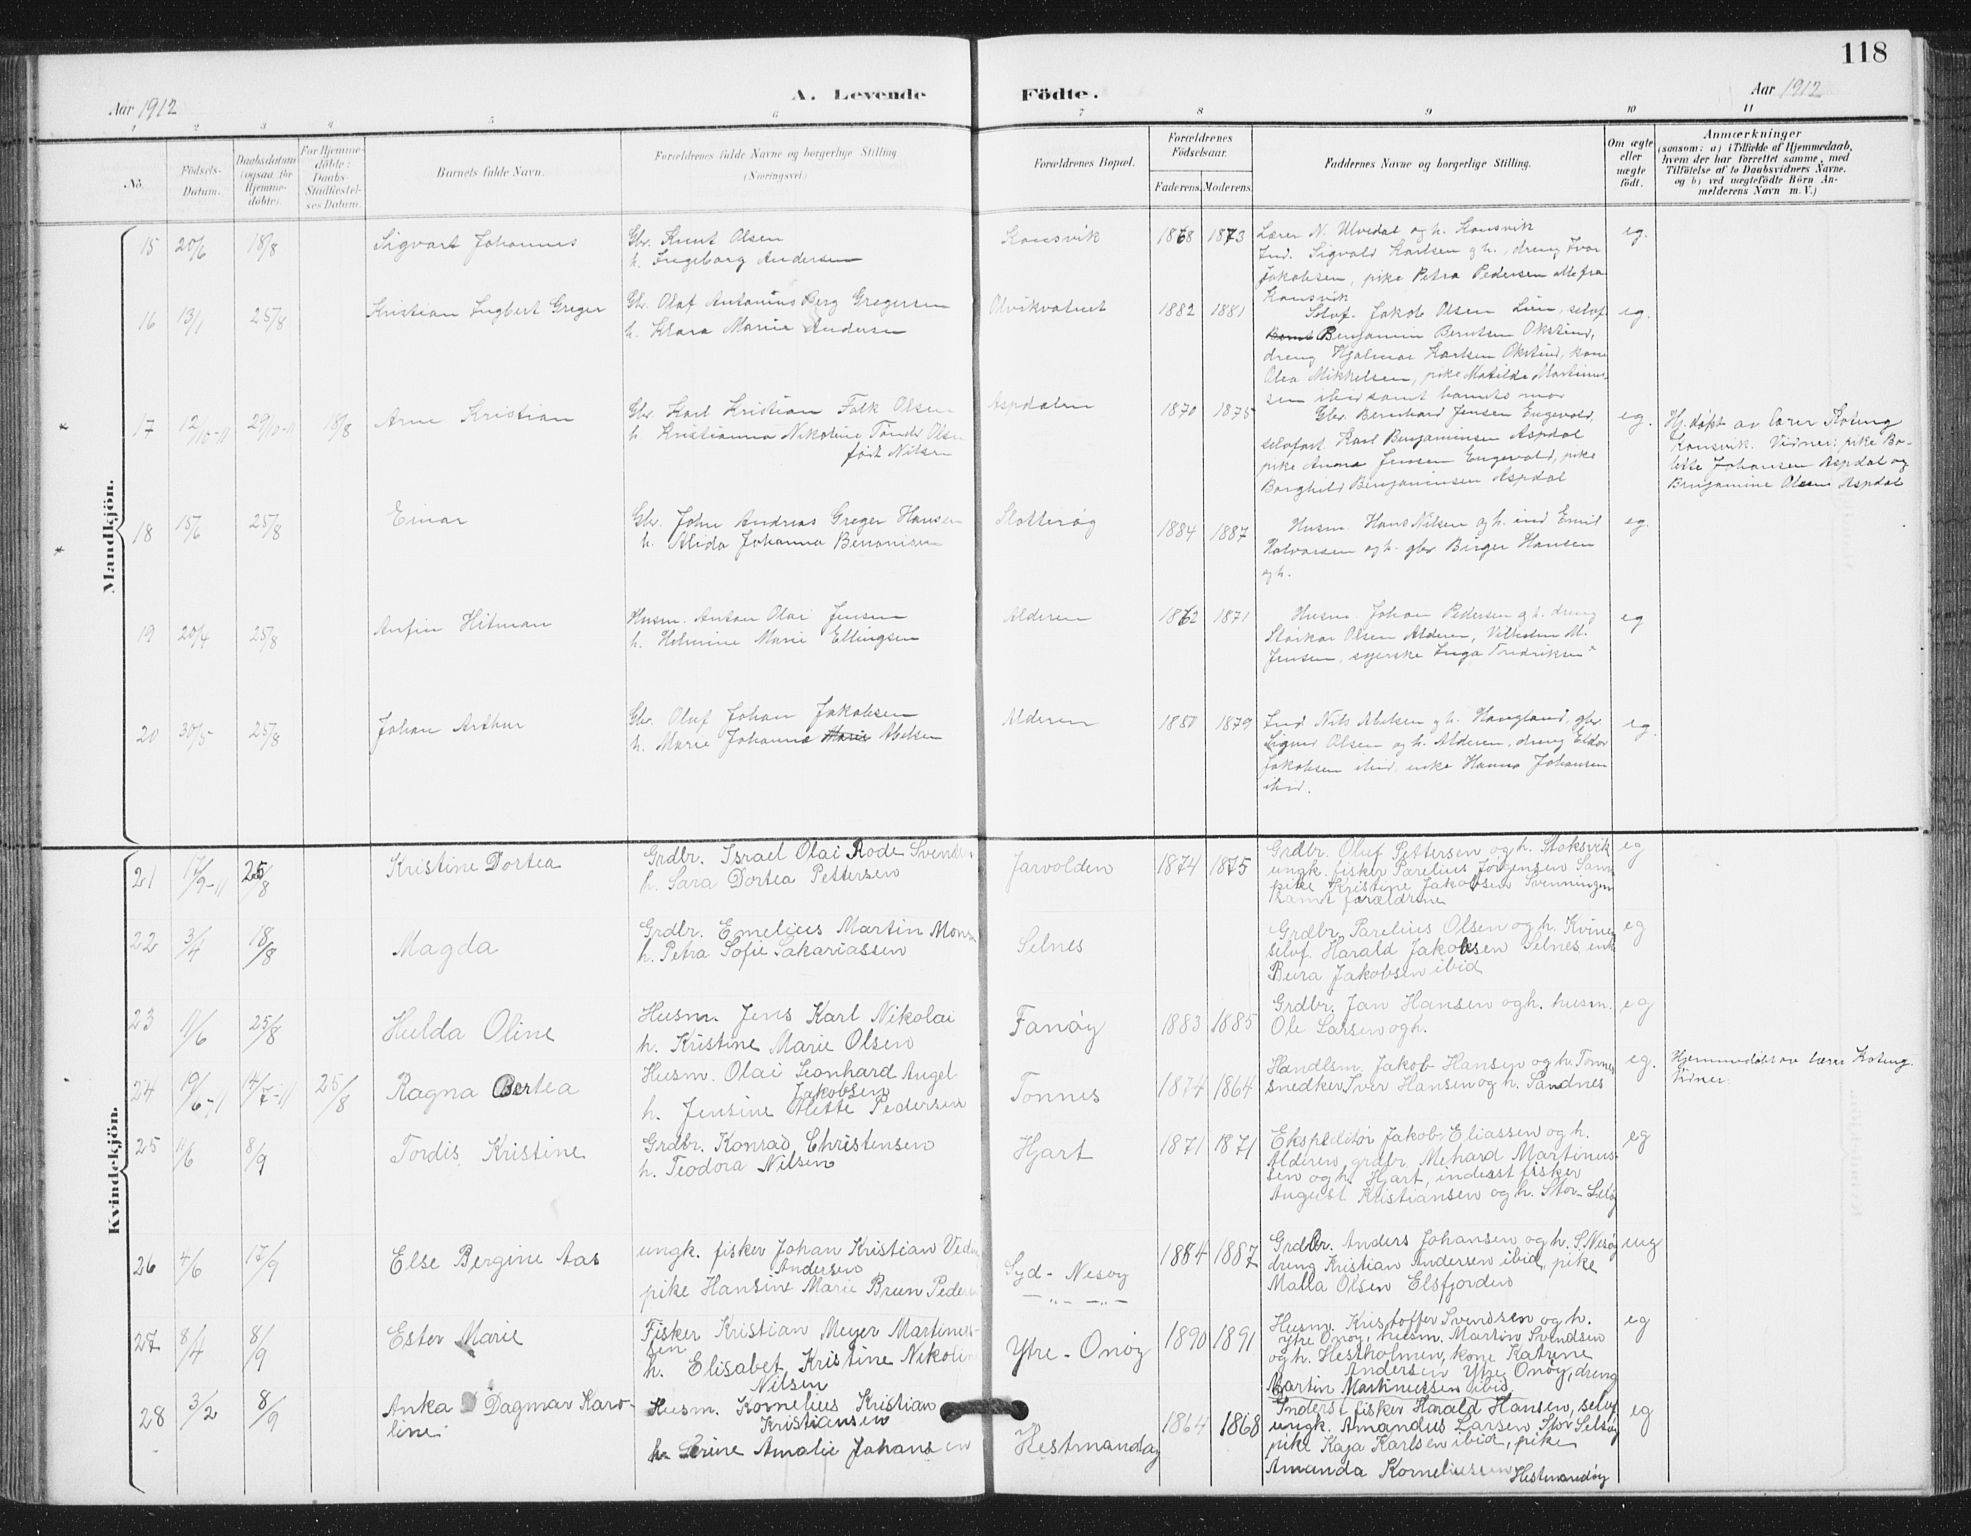 118
Aar 1912
A. Levende Födte.
Aar 1912
1 2 3 4 5 6 7 8 9 10 11
No.
Födsels-
Datum.
Daabsdatum
(ogsaa for
Hjemme-
döbte).
For Hjemme-
döbte:
Daabs-
Stadfæstel-
ses Datum.
Barnets fulde Navn.
Forældrenes fulde Navne og borgerlige Stilling
(Næringsvei)
Forældrenes Bopæl.
Forældrenes
Födselsaar.
Faderens. Moderens.
Faddernes Navne og borgerlige Stilling.
Om ægte
eller
uægte
födt.
Anmærkninger
(saasom: a) i Tilfælde af Hjemmedaab,
hvem der har forrettet samme, med
Tilföielse af to Daabsvidners Navne.
og b) ved uægtefödte Börn An-
melderens Navn m. V.)
Mandkjön.
15 20/6 18/8 Sigvart Johannes
Gbr. Knut Olsen
h. Ingeborg Andersen
Konsvik 1868 1873
Lærer N. Ulvedal og h. Konsvik
Ind. Sigvald Karlsen og h., dreng Ivar
Jakobsen, pike Petra Pedersen alle fra
Konsvik
eg.
16 13/1 25/8 Kristian Ingbert Greger
Gbr. Olaf Antonius Berg Gregersen
h. Klara Marie Andersen
Olvikvatnet 1882 1881
Selvf. Jakob Olsen Lien, selvf
Benjamin Berntsen Okstind,
dreng Hjalmar Karlsen Okstind, kone
Olea Mikkelsen, pike Matilde Martinus-
sen ibid samt barnets mor
eg.
17 12/10-11 29/10-11 18/8 Arne Kristian
Gbr. Karl Kristian Falk Olsen
h. Kristianna Nikoline Tønder Olsen
født Nilsen
Aspdalen 1870 1875
Gbr. Bernhard Jensen Engevold,
selvfost. Karl Benjaminsen Aspdal
pike Anna Jensen Engevold, pike
Borghild Benjaminsen Aspdal
eg.
Hj. døpt av lærer Koteng
Konsvik. Vidner: pike Bo-
lette Johansen Aspdal og
Benjamine Olsen Aspdal
18 15/6 25/8 Einar
Gbr. John Andreas Greger Hansen
h. Alida Johanna Benonisen
Slotterøy 1884 1887
Husm. Hans Nilsen og h. ind Emil
Halvorsen og h. gbr Birger Hansen
og h.
eg.
19 20/4 25/8 Anfin Hitman
Husm. Anton Olai Jensen
h. Helmine Marie Ellingsen
Alderen 1862 1871
Husm. Johan Pedersen og h. dreng
Stårkar Olsen Alderen, Vilhelm M.
Jensen, syerske Inga Fredriksen
eg
20 30/5 25/8 Johan Arthur
Gbr. Oluf Johan Jakobsen
h. Marie Johanna Marie Abelsen
Alderen 1880 1879
Ind Nils Abelsen og h. Haugland, gbr
Sigurd Olsen og h. Alderen, dreng Eldor
Jakobsen ibid. enke Hanna Johansen
ibid.
eg.
Kvindekjön.
21 17/9-11 25/8 Kristine Dortea
Grdbr. Israel Olai Rode Svendsen
h. Sara Dortea Pettersen
Jarvolden 1874 1875
Grdbr. Oluf Pettersen og h. Stoksvik
ungk. fisker Parelius Jørgensen Sann
pike Kristine Jakobsen Svenningen
samt forældrene
eg
22 3/4 18/8 Magda
Grdbr. Emelius Martin Monsen
h. Petra Sofie Sakariassen
Selnes
Grdbr. Parelius Olsen og h. Kvines
selvf. Harald Jakobsen Selnes, enke
Bera Jakobsen ibid
eg
23 11/6 25/8 Hulda Oline
Husm. Jens Karl Nikolai
h. Kristine Marie Olsen
Fanøy 1883 1885
Grdbr. Jan Hansen og h. husm.
Ole Larsen og h.
eg
24 19/6-11 14/7-11 25/8 Ragna Bertea
Husm. Olai Leonhard Angel
Jakobsen
h. Jensine Alette Pedersen
Tonnes 1874 1864
Handlsm. Jakob Hansen og h. Tonnes
snedker Iver Hansen og h. Sandnes
eg.
Hjemmedøbt av lærer Koteng.
Vidner:
25 11/6 8/9 Tordis Kristine
Grdbr. Konrad Christensen
h. Teodora Nilsen
Hjart 1871 1871
Ekspeditør Jakob Eliassen og h.
Alderen, grdbr. Mehard Martinus-
sen og h. Hjart, inderst fisker
August Kristiansen og h. Stor-Selsøy
eg
26 4/6 17/9 Else Bergine Aas
ungk. fisker Johan Kristian Vedin
Andersen
pike Hansine Marie Brun Pedersen
Syd-Nesøy
— „ — „ —
1884 1887
Grdbr. Anders Johansen og h. S. Nesøy
dreng Kristian Andersen ibid, pike
Malla Olsen Elsfjorden
ueg
27 8/4 8/9 Ester Marie
Fisker Kristian Meyer Martinus-
sen
h. Elisabet Kristine Nikoline
Nilsen
Ytre-Onøy 1890 1891
Husm. Kristoffer Svendsen og h.
Ytre Onøy, husm. Martin Svendsen
og h. Hestholmen, kone Katrine
Andersen Ytre Onøy, dreng
Martin Martinussen ibid.
eg
28 3/2 8/9 Anka Dagmar Karo-
line
Husm. Kornelius Kristian
Kristiansen
h. Serine Amalie Johansen
Hestmandøy 1864 1868
Inderst fisker Harald Hansen, selvf
ungk. Amandus Larsen Stor Selsøy
pike Kaja Karlsen ibid, pike
Amanda Korneliussen Hestmandøy
eg